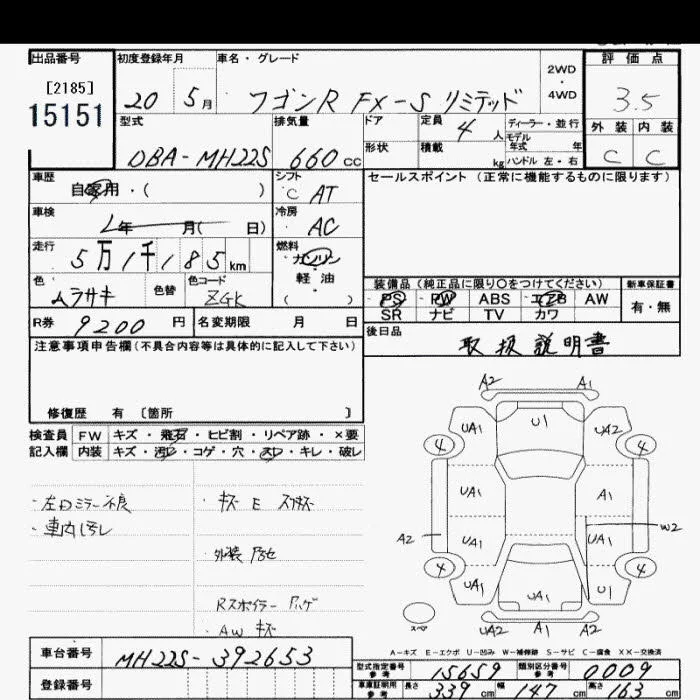 出品番号 初度登録年月 車名・グレード 評価点
[2185] 2WD
・
15151 20 5月 ワゴンR FX-S リミテッド 4WD 3.5
型式 排気量 ドア 定員 4人 ディーラー・並行 外装 内装
モデル
年式 年
DBA-MH22S 660cc 形状 積載 kg ハンドル 左・右 C C
車歴 シフト セールスポイント (正常に機能するものに限ります)
自家用・( ) C AT
車検 冷房
年 月( 日) AC
走行 燃料
5万1千185km ガソリン
色 色替 色コード 軽油 装備品(純正品に限り○をつけてください) 新車保証書
ムラサキ ZGK ( ) PS PW ABS エアB AW 有・無
SR ナビ TV カワ
R券 9200円 名変期限 月 日 後日品
注意事項申告欄(不具合内容等は具体的に記入して下さい) 取扱説明書
修復歴 有 〔箇所 〕
検査員 FW キズ・飛石・ヒビ割・リペア跡・×要
記入欄 内装 キズ・汚レ・コゲ・穴・スレ・キレ・破レ
・左ドミラー不良 ・キズ E スリキズ
・車内汚レ
・外装
Rスポイラー ハゲ
・AW キズ
A2 A1
UA1 U1 UA2
4 4
UA1 A1
A2 UA1 UA1 W2
4 4
UA1 UA1 U1
スペア UA2 A1 A2
A-キズ E-エクボ U-凹み W-補修跡 S-サビ C-腐食 XX-交換済
車台番号 MH22S-392653
型式指定番号 参考 15659 類別区分番号 参考 0009
登録番号 車庫証明用 参考 長さ 339cm 幅 147cm 高さ 163cm